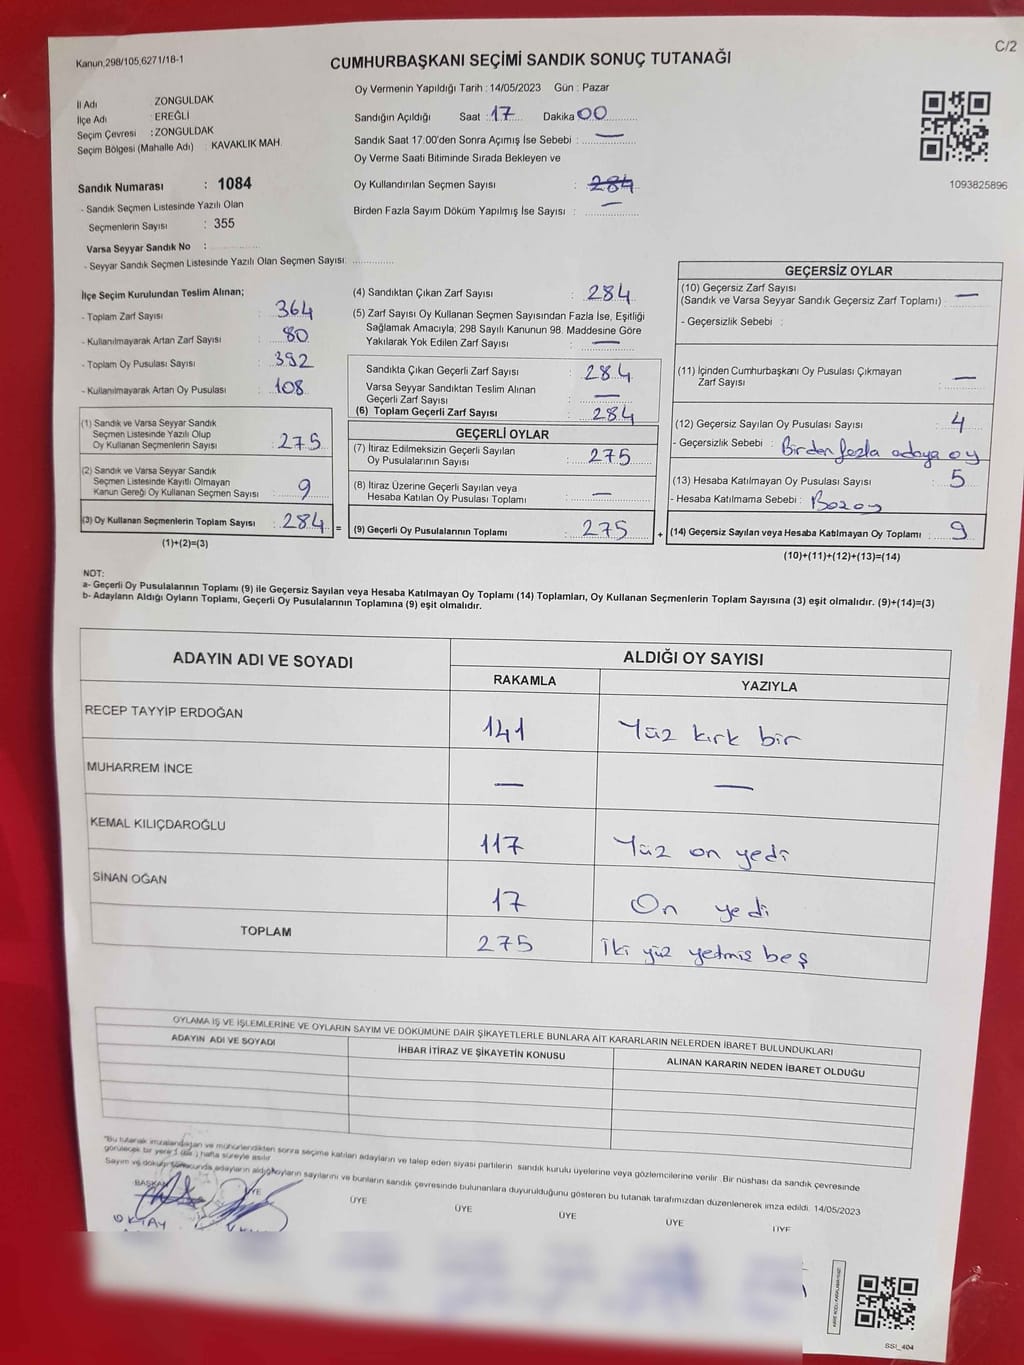 C/2
Kanun,298/105,6271/18-1
CUMHURBAŞKANI SEÇİMİ SANDIK SONUÇ TUTANAĞI
İl Adı ZONGULDAK
İlçe Adı : EREĞLİ
Seçim Çevresi : ZONGULDAK
Seçim Bölgesi (Mahalle Adı) : KAVAKLIK MAH.
Sandık Numarası : 1084
- Sandık Seçmen Listesinde Yazılı Olan
Seçmenlerin Sayısı : 355
Varsa Seyyar Sandık No :
- Seyyar Sandık Seçmen Listesinde Yazılı Olan Seçmen Sayısı:
Oy Vermenin Yapıldığı Tarih : 14/05/2023 Gün : Pazar
Sandığın Açıldığı Saat : 17 Dakika 00
Sandık Saat 17.00'den Sonra Açımış İse Sebebi : —
Oy Verme Saati Bitiminde Sırada Bekleyen ve
Oy Kullandırılan Seçmen Sayısı : 284
Birden Fazla Sayım Döküm Yapılmış İse Sayısı : —
1093825896
İlçe Seçim Kurulundan Teslim Alınan;
- Toplam Zarf Sayısı : 364
- Kullanılmayarak Artan Zarf Sayısı : 80
- Toplam Oy Pusulası Sayısı : 392
- Kullanılmayarak Artan Oy Pusulası : 108
(1) Sandık ve Varsa Seyyar Sandık
Seçmen Listesinde Yazılı Olup
Oy Kullanan Seçmenlerin Sayısı : 275
(2) Sandık ve Varsa Seyyar Sandık
Seçmen Listesinde Kayıtlı Olmayan
Kanun Gereği Oy Kullanan Seçmen Sayısı : 9
(3) Oy Kullanan Seçmenlerin Toplam Sayısı : 284 =
(1)+(2)=(3)
(4) Sandıktan Çıkan Zarf Sayısı : 284
(5) Zarf Sayısı Oy Kullanan Seçmen Sayısından Fazla İse, Eşitliği
Sağlamak Amacıyla; 298 Sayılı Kanunun 98. Maddesine Göre
Yakılarak Yok Edilen Zarf Sayısı : —
Sandıkta Çıkan Geçerli Zarf Sayısı : 284
Varsa Seyyar Sandıktan Teslim Alınan
Geçerli Zarf Sayısı : —
(6) Toplam Geçerli Zarf Sayısı : 284
GEÇERLİ OYLAR
(7) İtiraz Edilmeksizin Geçerli Sayılan
Oy Pusulalarının Sayısı : 275
(8) İtiraz Üzerine Geçerli Sayılan veya
Hesaba Katılan Oy Pusulası Toplamı : —
(9) Geçerli Oy Pusulalarının Toplamı : 275 +
GEÇERSİZ OYLAR
(10) Geçersiz Zarf Sayısı
(Sandık ve Varsa Seyyar Sandık Geçersiz Zarf Toplamı) : —
- Geçersizlik Sebebi :
(11) İçinden Cumhurbaşkanı Oy Pusulası Çıkmayan
Zarf Sayısı : —
(12) Geçersiz Sayılan Oy Pusulası Sayısı : 4
- Geçersizlik Sebebi : Birden fazla adaya oy
(13) Hesaba Katılmayan Oy Pusulası Sayısı : 5
- Hesaba Katılmama Sebebi : Bozoy
(14) Geçersiz Sayılan veya Hesaba Katılmayan Oy Toplamı : 9
(10)+(11)+(12)+(13)=(14)
NOT:
a- Geçerli Oy Pusulalarının Toplamı (9) ile Geçersiz Sayılan veya Hesaba Katılmayan Oy Toplamı (14) Toplamları, Oy Kullanan Seçmenlerin Toplam Sayısına (3) eşit olmalıdır. (9)+(14)=(3)
b- Adayların Aldığı Oyların Toplamı, Geçerli Oy Pusulalarının Toplamına (9) eşit olmalıdır.
ADAYIN ADI VE SOYADI ALDIĞI OY SAYISI
RAKAMLA YAZIYLA
RECEP TAYYİP ERDOĞAN 141 Yüz kırk bir
MUHARREM İNCE — —
KEMAL KILIÇDAROĞLU 117 Yüz on yedi
SİNAN OĞAN 17 On yedi
TOPLAM 275 İki yüz yetmiş beş
OYLAMA İŞ VE İŞLEMLERİNE VE OYLARIN SAYIM VE DÖKÜMÜNE DAİR ŞİKAYETLERLE BUNLARA AİT KARARLARIN NELERDEN İBARET BULUNDUKLARI
ADAYIN ADI VE SOYADI İHBAR İTİRAZ VE ŞİKAYETİN KONUSU ALINAN KARARIN NEDEN İBARET OLDUĞU
"Bu tutanak imzalandıktan ve mühürlendikten sonra seçime katılan adayların ve talep eden siyasi partilerin sandık kurulu üyelerine veya gözlemcilerine verilir. Bir nüshası da sandık çevresinde
görülecek bir yere 1 (Bir) hafta süreyle asılır.
Sayım ve döküm sonucunda adayların aldığı oyların sayılarını ve bunların sandık çevresinde bulunanlara duyurulduğunu gösteren bu tutanak tarafımızdan düzenlenerek imza edildi. 14/05/2023
BAŞKAN ÜYE ÜYE ÜYE ÜYE ÜYE ÜYE
OKTAY
SSI_404